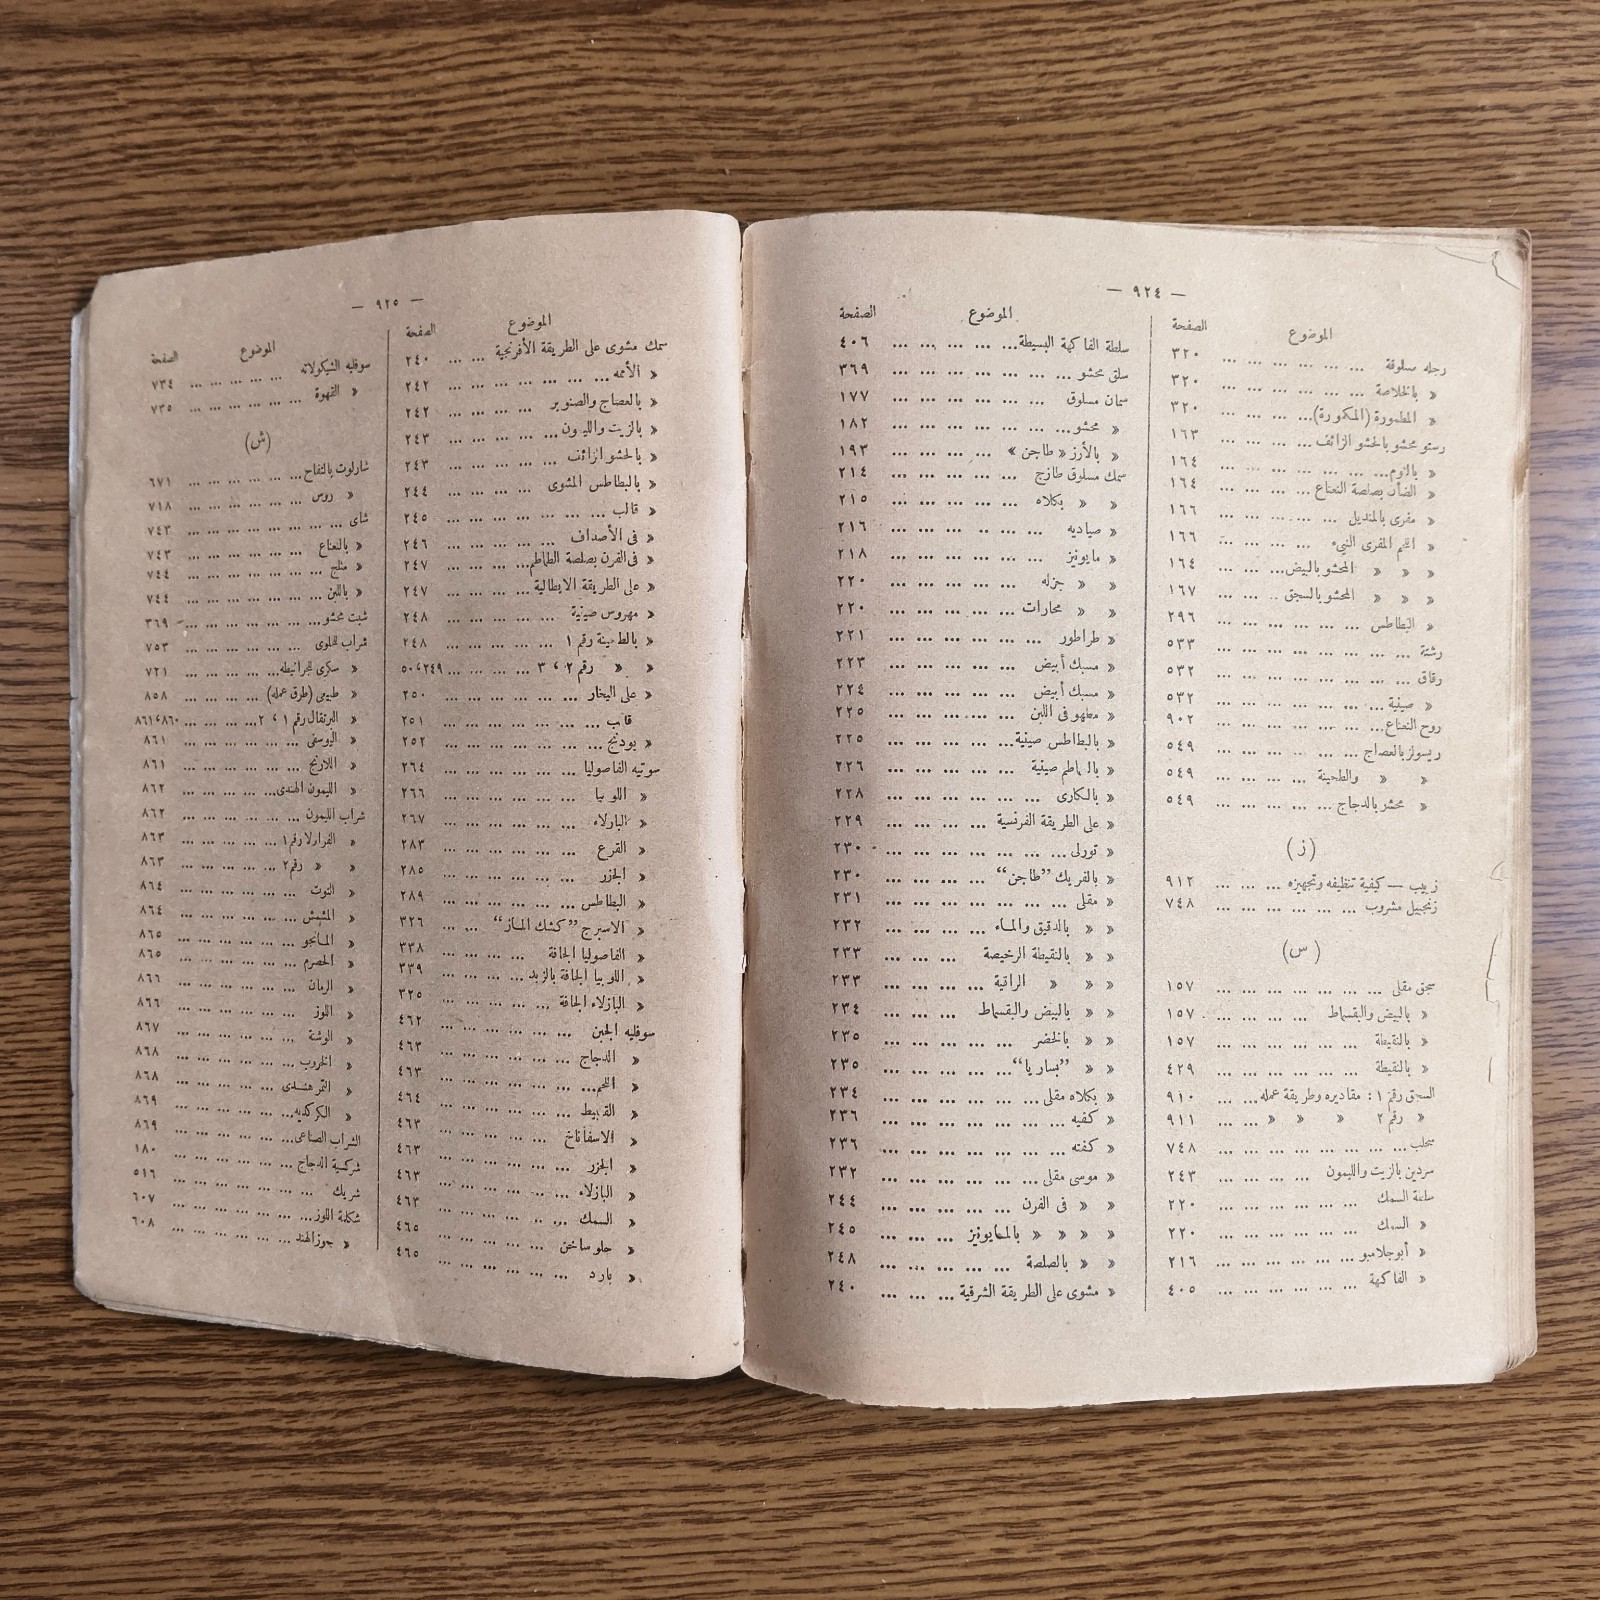 — ٩٢٤ —
الموضوع الصفحة
رجله مسلوقة ... ... ... ... ... ٣٢٠
« بالخلاصة ... ... ... ... ... ٣٢٠
« المطمورة (المكمورة) ... ... ... ... ٣٢٠
رستو محشو بالحشو الزائف ... ... ... ... ١٦٣
« بالثوم ... ... ... ... ... ... ... ١٦٤
« الضأن بصلصة النعناع ... ... ... ... ١٦٤
« مفرى بالمنديل ... ... ... ... ... ١٦٦
« اللحم المفرى النىء ... ... ... ... ١٦٦
« « « المحشو بالبيض ... ... ... ١٦٤
« « « المحشو بالسجق ... ... ... ١٦٧
« البطاطس ... ... ... ... ... ... ٢٩٦
رشتة ... ... ... ... ... ... ... ... ٥٣٣
رقاق ... ... ... ... ... ... ... ... ٥٣٢
« صينية ... ... ... ... ... ... ... ٥٣٢
روح النعناع ... ... ... ... ... ... ... ٩٠٢
ريسولز بالعصاج ... ... ... ... ... ... ٥٤٩
« « والطحينة ... ... ... ... ٥٤٩
« محشو بالدجاج ... ... ... ... ... ٥٤٩
(ز)
زبيب — كيفية تنظيفه وتجهيزه ... ... ... ٩١٢
زنجبيل مشروب ... ... ... ... ... ... ٧٤٨
(س)
سجق مقلى ... ... ... ... ... ... ... ١٥٧
« بالبيض والبقسماط ... ... ... ... ١٥٧
« بالنقيطة ... ... ... ... ... ... ١٥٧
« بالنقيطة ... ... ... ... ... ... ٤٢٩
السجق رقم ١ : مقاديره وطريقة عمله ... ... ٩١٠
« رقم ٢ « « « ... ... ٩١١
سحلب ... ... ... ... ... ... ... ... ٧٤٨
سردين بالزيت والليمون ... ... ... ... ٢٤٣
سلطة السمك ... ... ... ... ... ... ٢٢٠
« السمك ... ... ... ... ... ... ٢٢٠
« أبوجلامبو ... ... ... ... ... ... ٢١٦
« الفاكهة ... ... ... ... ... ... ٤٠٥
الموضوع الصفحة
سلطة الفاكهة البسيطة ... ... ... ... ... ٤٠٦
سلق محشو ... ... ... ... ... ... ... ٣٦٩
سمان مسلوق ... ... ... ... ... ... ١٧٧
« محشو ... ... ... ... ... ... ... ١٨٢
« بالأرز « طاجن » ... ... ... ... ١٩٣
سمك مسلوق طازج ... ... ... ... ... ... ٢١٤
« « بكلاه ... ... ... ... ... ... ٢١٥
« صياديه ... ... ... ... ... ... ٢١٦
« مايونيز ... ... ... ... ... ... ٢١٨
« « جزله ... ... ... ... ... ٢٢٠
« « محارات ... ... ... ... ... ... ٢٢٠
« طراطور ... ... ... ... ... ... ٢٢١
« مسبك أبيض ... ... ... ... ... ٢٢٣
« مسبك أبيض ... ... ... ... ... ٢٢٤
« مطهو فى اللبن ... ... ... ... ... ٢٢٥
« بالبطاطس صينية ... ... ... ... ... ٢٢٥
« بالطماطم صينية ... ... ... ... ... ٢٢٦
« بالكارى ... ... ... ... ... ... ٢٢٨
« على الطريقة الفرنسية ... ... ... ... ٢٢٩
« تورلى ... ... ... ... ... ... ... ٢٣٠
« بالفريك “طاجن” ... ... ... ... ٢٣٠
« مقلى ... ... ... ... ... ... ... ٢٣١
« « بالدقيق والماء ... ... ... ... ٢٣٢
« « بالنقيطة الرخيصة ... ... ... ... ٢٣٣
« « « الراقية ... ... ... ... ٢٣٣
« « بالبيض والبقسماط ... ... ... ... ٢٣٤
« « بالخضر ... ... ... ... ... ... ٢٣٥
« « “بساريا” ... ... ... ... ... ٢٣٥
« بكلاه مقلى ... ... ... ... ... ... ٢٣٤
« كفيه ... ... ... ... ... ... ... ٢٣٦
« كفته ... ... ... ... ... ... ... ٢٣٦
« موسى مقلى ... ... ... ... ... ... ٢٣٢
« « فى الفرن ... ... ... ... ... ٢٤٤
« « « « بالمايونيز ... ... ... ٢٤٥
« « بالصلصة ... ... ... ... ... ٢٤٨
« مشوى على الطريقة الشرقية ... ... ... ٢٤٠
— ٩٢٥ —
الموضوع الصفحة
سمك مشوى على الطريقة الأفرنجية ... ... ٢٤٠
« الأممه ... ... ... ... ... ... ... ٢٤٢
« بالعصاج والصنوبر ... ... ... ... ٢٤٢
« بالزيت والليمون ... ... ... ... ... ٢٤٣
« بالحشو الزائف ... ... ... ... ... ٢٤٣
« بالبطاطس المشوى ... ... ... ... ٢٤٤
« قالب ... ... ... ... ... ... ... ٢٤٥
« فى الأصداف ... ... ... ... ... ... ٢٤٦
« فى الفرن بصلصة الطماطم ... ... ... ... ٢٤٧
« على الطريقة الايطالية ... ... ... ... ٢٤٧
« مهروس صينية ... ... ... ... ... ٢٤٨
« بالطحينة رقم ١ ... ... ... ... ... ٢٤٨
« « رقم ٢ ، ٣ ... ... ... ... ٢٤٩،٥٠
« على البخار ... ... ... ... ... ... ٢٥٠
قالب ... ... ... ... ... ... ... ٢٥١
« بودنج ... ... ... ... ... ... ... ٢٥٢
سوتيه الفاصوليا ... ... ... ... ... ... ٢٦٤
« اللوبيا ... ... ... ... ... ... ٢٦٦
« البازلاء ... ... ... ... ... ... ٢٦٧
« القرع ... ... ... ... ... ... ٢٨٣
« الجزر ... ... ... ... ... ... ٢٨٥
« البطاطس ... ... ... ... ... ... ٢٨٩
« الاسبرج “كشك الماز” ... ... ٣٢٦
« الفاصوليا الجافة ... ... ... ... ٣٣٨
« اللوبيا الجافة بالزبد ... ... ... ... ٣٣٩
« البازلاء الجافة ... ... ... ... ... ٣٢٥
سوفليه الجبن ... ... ... ... ... ... ٤٦٢
« الدجاج ... ... ... ... ... ... ٤٦٣
« اللحم ... ... ... ... ... ... ٤٦٣
« القنبيط ... ... ... ... ... ... ٤٦٤
« الاسفاناخ ... ... ... ... ... ٤٦٣
« الجزر ... ... ... ... ... ... ٤٦٣
« البازلاء ... ... ... ... ... ... ٤٦٣
« السمك ... ... ... ... ... ... ٤٦٣
« حلو ساخن ... ... ... ... ... ٤٦٥
« بارد ... ... ... ... ... ... ٤٦٥
الموضوع الصفحة
سوفليه الشيكولاته ... ... ... ... ... ٧٣٤
« القهوة ... ... ... ... ... ... ٧٣٥
(ش)
شارلوت بالتفاح ... ... ... ... ... ... ٦٧١
« روس ... ... ... ... ... ... ٧١٨
شاى ... ... ... ... ... ... ... ... ٧٤٣
« بالنعناع ... ... ... ... ... ... ٧٤٣
« مثلج ... ... ... ... ... ... ... ٧٤٤
« باللبن ... ... ... ... ... ... ... ٧٤٤
شبت محشو ... ... ... ... ... ... ... ٣٦٩
شراب للحلوى ... ... ... ... ... ... ٧٥٣
« سكرى للجرانيطه ... ... ... ... ... ٧٢١
« طبيعى (طرق عمله) ... ... ... ... ٨٥٨
« البرتقال رقم ١ ، ٢ ... ... ... ... ٨٦٠،٨٦١
« اليوسفى ... ... ... ... ... ... ٨٦١
« اللارنج ... ... ... ... ... ... ٨٦١
« الليمون الهندى ... ... ... ... ... ٨٦٢
شراب الليمون ... ... ... ... ... ... ٨٦٢
« الفراولا رقم ١ ... ... ... ... ... ٨٦٣
« « رقم ٢ ... ... ... ... ... ٨٦٣
« التوت ... ... ... ... ... ... ٨٦٤
« المشمش ... ... ... ... ... ... ٨٦٤
« المانجو ... ... ... ... ... ... ٨٦٥
« الحصرم ... ... ... ... ... ... ٨٦٥
« الرمان ... ... ... ... ... ... ٨٦٦
« اللوز ... ... ... ... ... ... ٨٦٦
« الوشنة ... ... ... ... ... ... ٨٦٧
« الخروب ... ... ... ... ... ... ٨٦٨
« التمر هندى ... ... ... ... ... ٨٦٨
« الكركديه ... ... ... ... ... ... ٨٦٩
الشراب الصناعى ... ... ... ... ... ... ٨٦٩
شركسية الدجاج ... ... ... ... ... ... ١٨٠
شريك ... ... ... ... ... ... ... ٥١٦
شكلمة اللوز ... ... ... ... ... ... ٦٠٧
« جوز الهند ... ... ... ... ... ... ٦٠٨